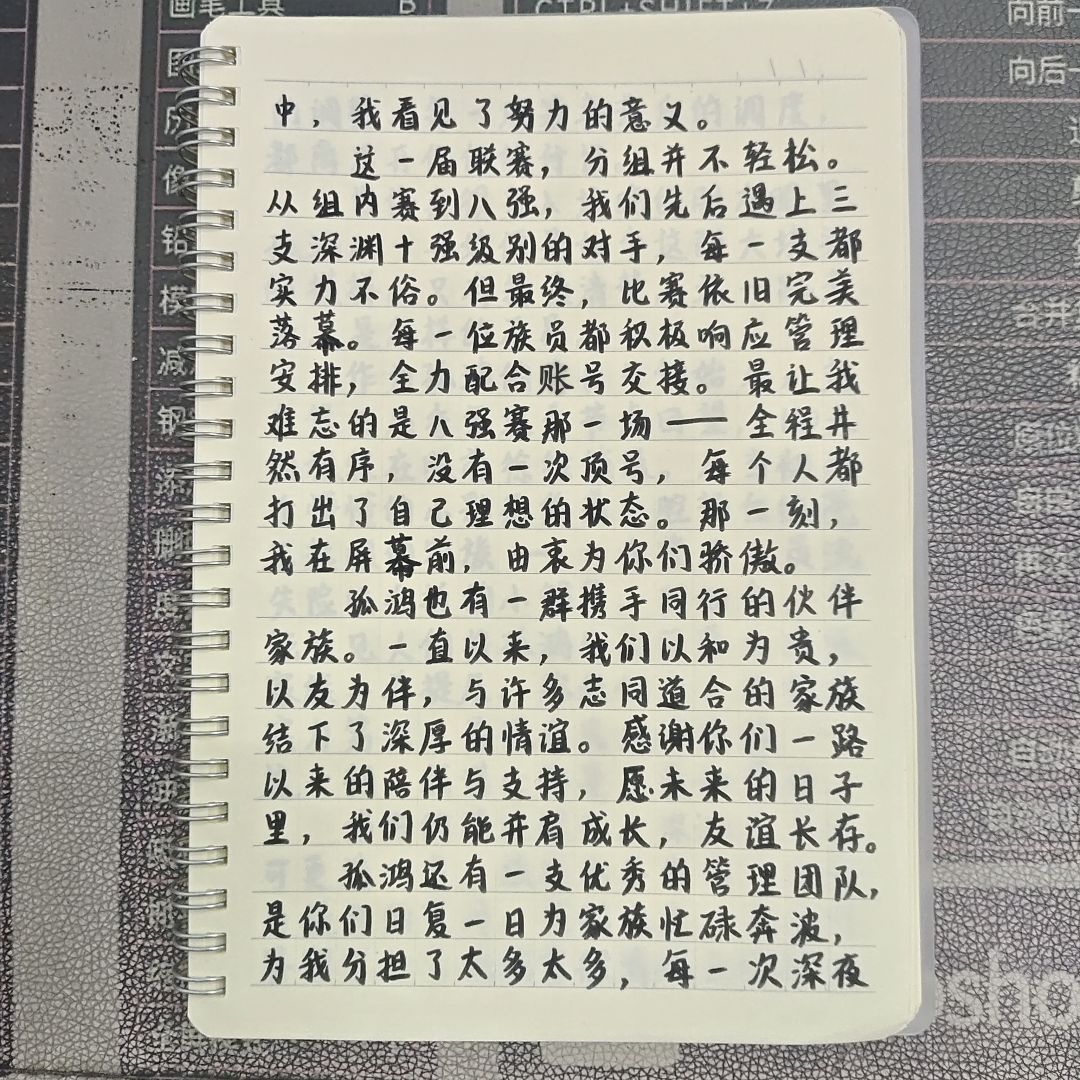 中，我看见了努力的意义。
这一届联赛，分组并不轻松。
从组内赛到八强，我们先后遇上三
支深渊十强级别的对手，每一支都
实力不俗。但最终，比赛依旧完美
落幕。每一位族员都积极响应管理
安排，全力配合账号交接。最让我
难忘的是八强赛那一场——全程井
然有序，没有一次顶号，每个人都
打出了自己理想的状态。那一刻，
我在屏幕前，由衷为你们骄傲。
孤鸿也有一群携手同行的伙伴
家族。一直以来，我们以和为贵，
以友为伴，与许多志同道合的家族
结下了深厚的情谊。感谢你们一路
以来的陪伴与支持，愿未来的日子
里，我们仍能并肩成长，友谊长存。
孤鸿还有一支优秀的管理团队，
是你们日复一日为家族忙碌奔波，
为我分担了太多太多，每一次深夜
画笔工具
B
CTRL+SHIFT+Z
向前
向后